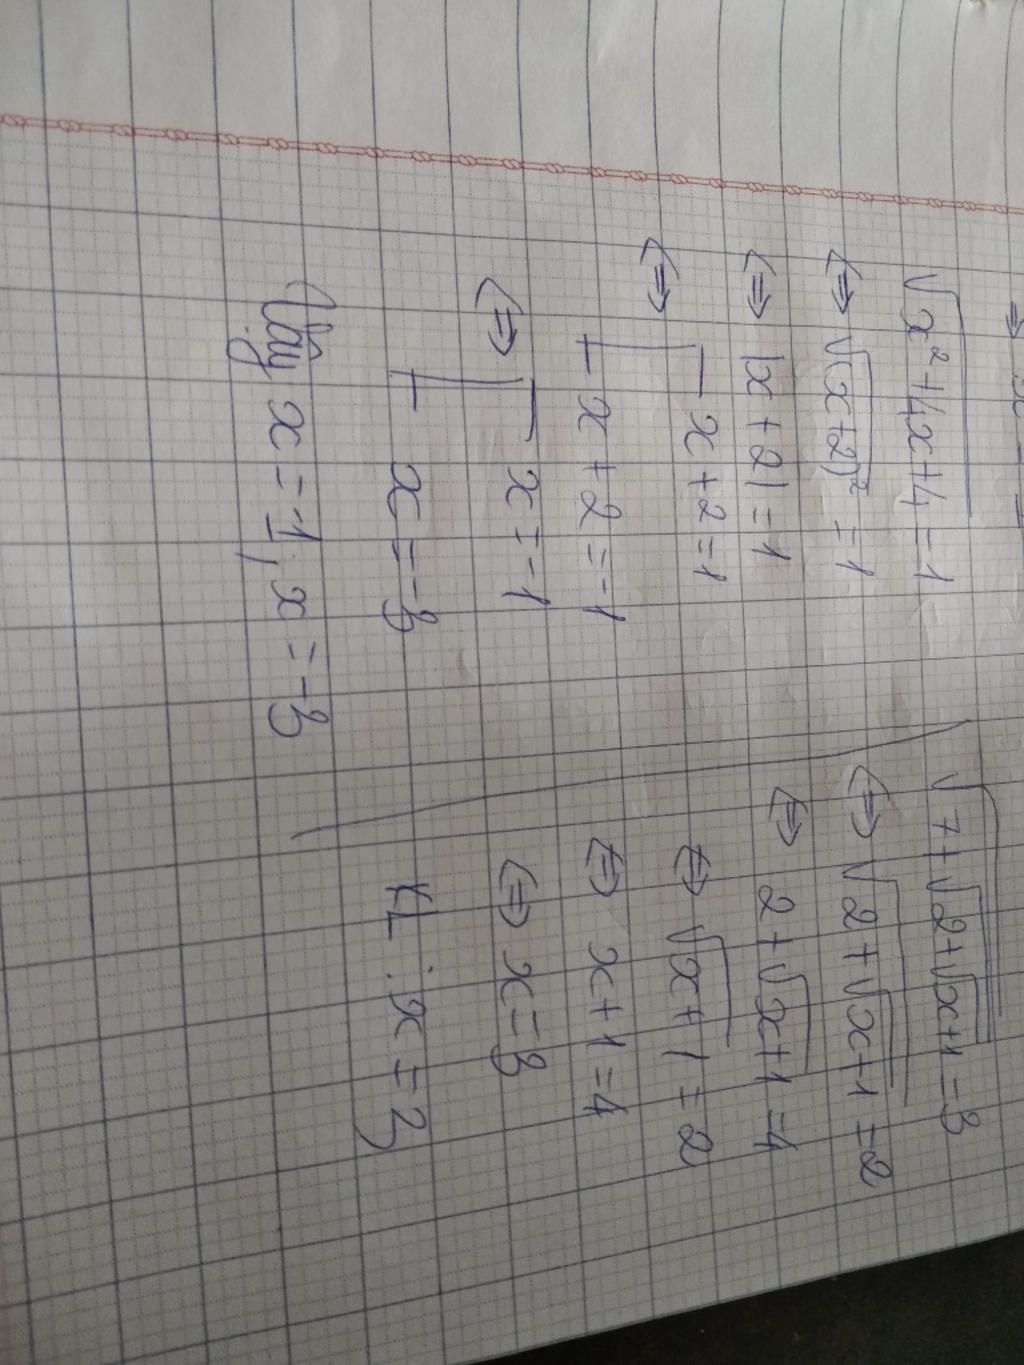 √x²+4x+4 = 1
⇔ √(x+2)² = 1
⇔ |x+2| = 1
⇔ [ x+2=1
x+2=-1
⇔ [ x=-1
x=-3
Vậy x=-1, x=-3
√7+√2+√x+1 = 3
⇔ √2+√x+1 = 2
⇔ 2+√x+1 = 4
⇔ √x+1 = 2
⇔ x+1=4
⇔ x=3
KL : x=3